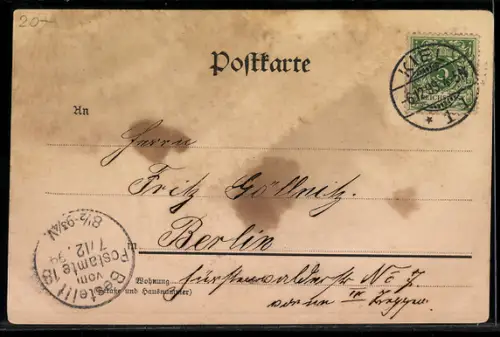 20.-
Postkarte
KIEL
6.12.95
1.
REICHSPOST
An
Herrn
Fritz Göllnitz.
in Berlin
Wohnung
(Straße und Hausnummer)
Fürstenwalderstr No 7
vorne III Treppen.
Bestellt
vom
Postamte 18
7/12.
8½-9¾V.